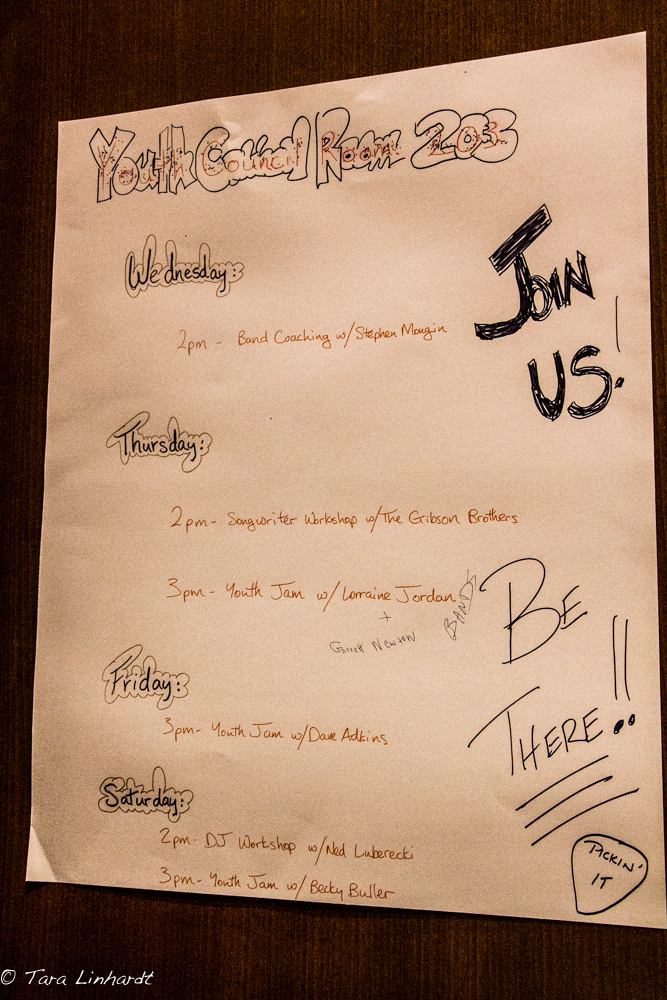 Youth Council Room 203
Wednesday:
JOIN
US!
2pm - Band Coaching w/Stephen Mougin
Thursday:
2pm - Songwriter Workshop w/The Gibson Brothers
3pm - Youth Jam w/ Lorraine Jordan BANDS
+
Garrett Newton
BE
THERE!!
Friday:
3pm - Youth Jam w/Dave Adkins
Saturday:
2pm - DJ Workshop w/Ned Luberecki
3pm - Youth Jam w/ Becky Buller
PICKIN'
IT
© Tara Linhardt